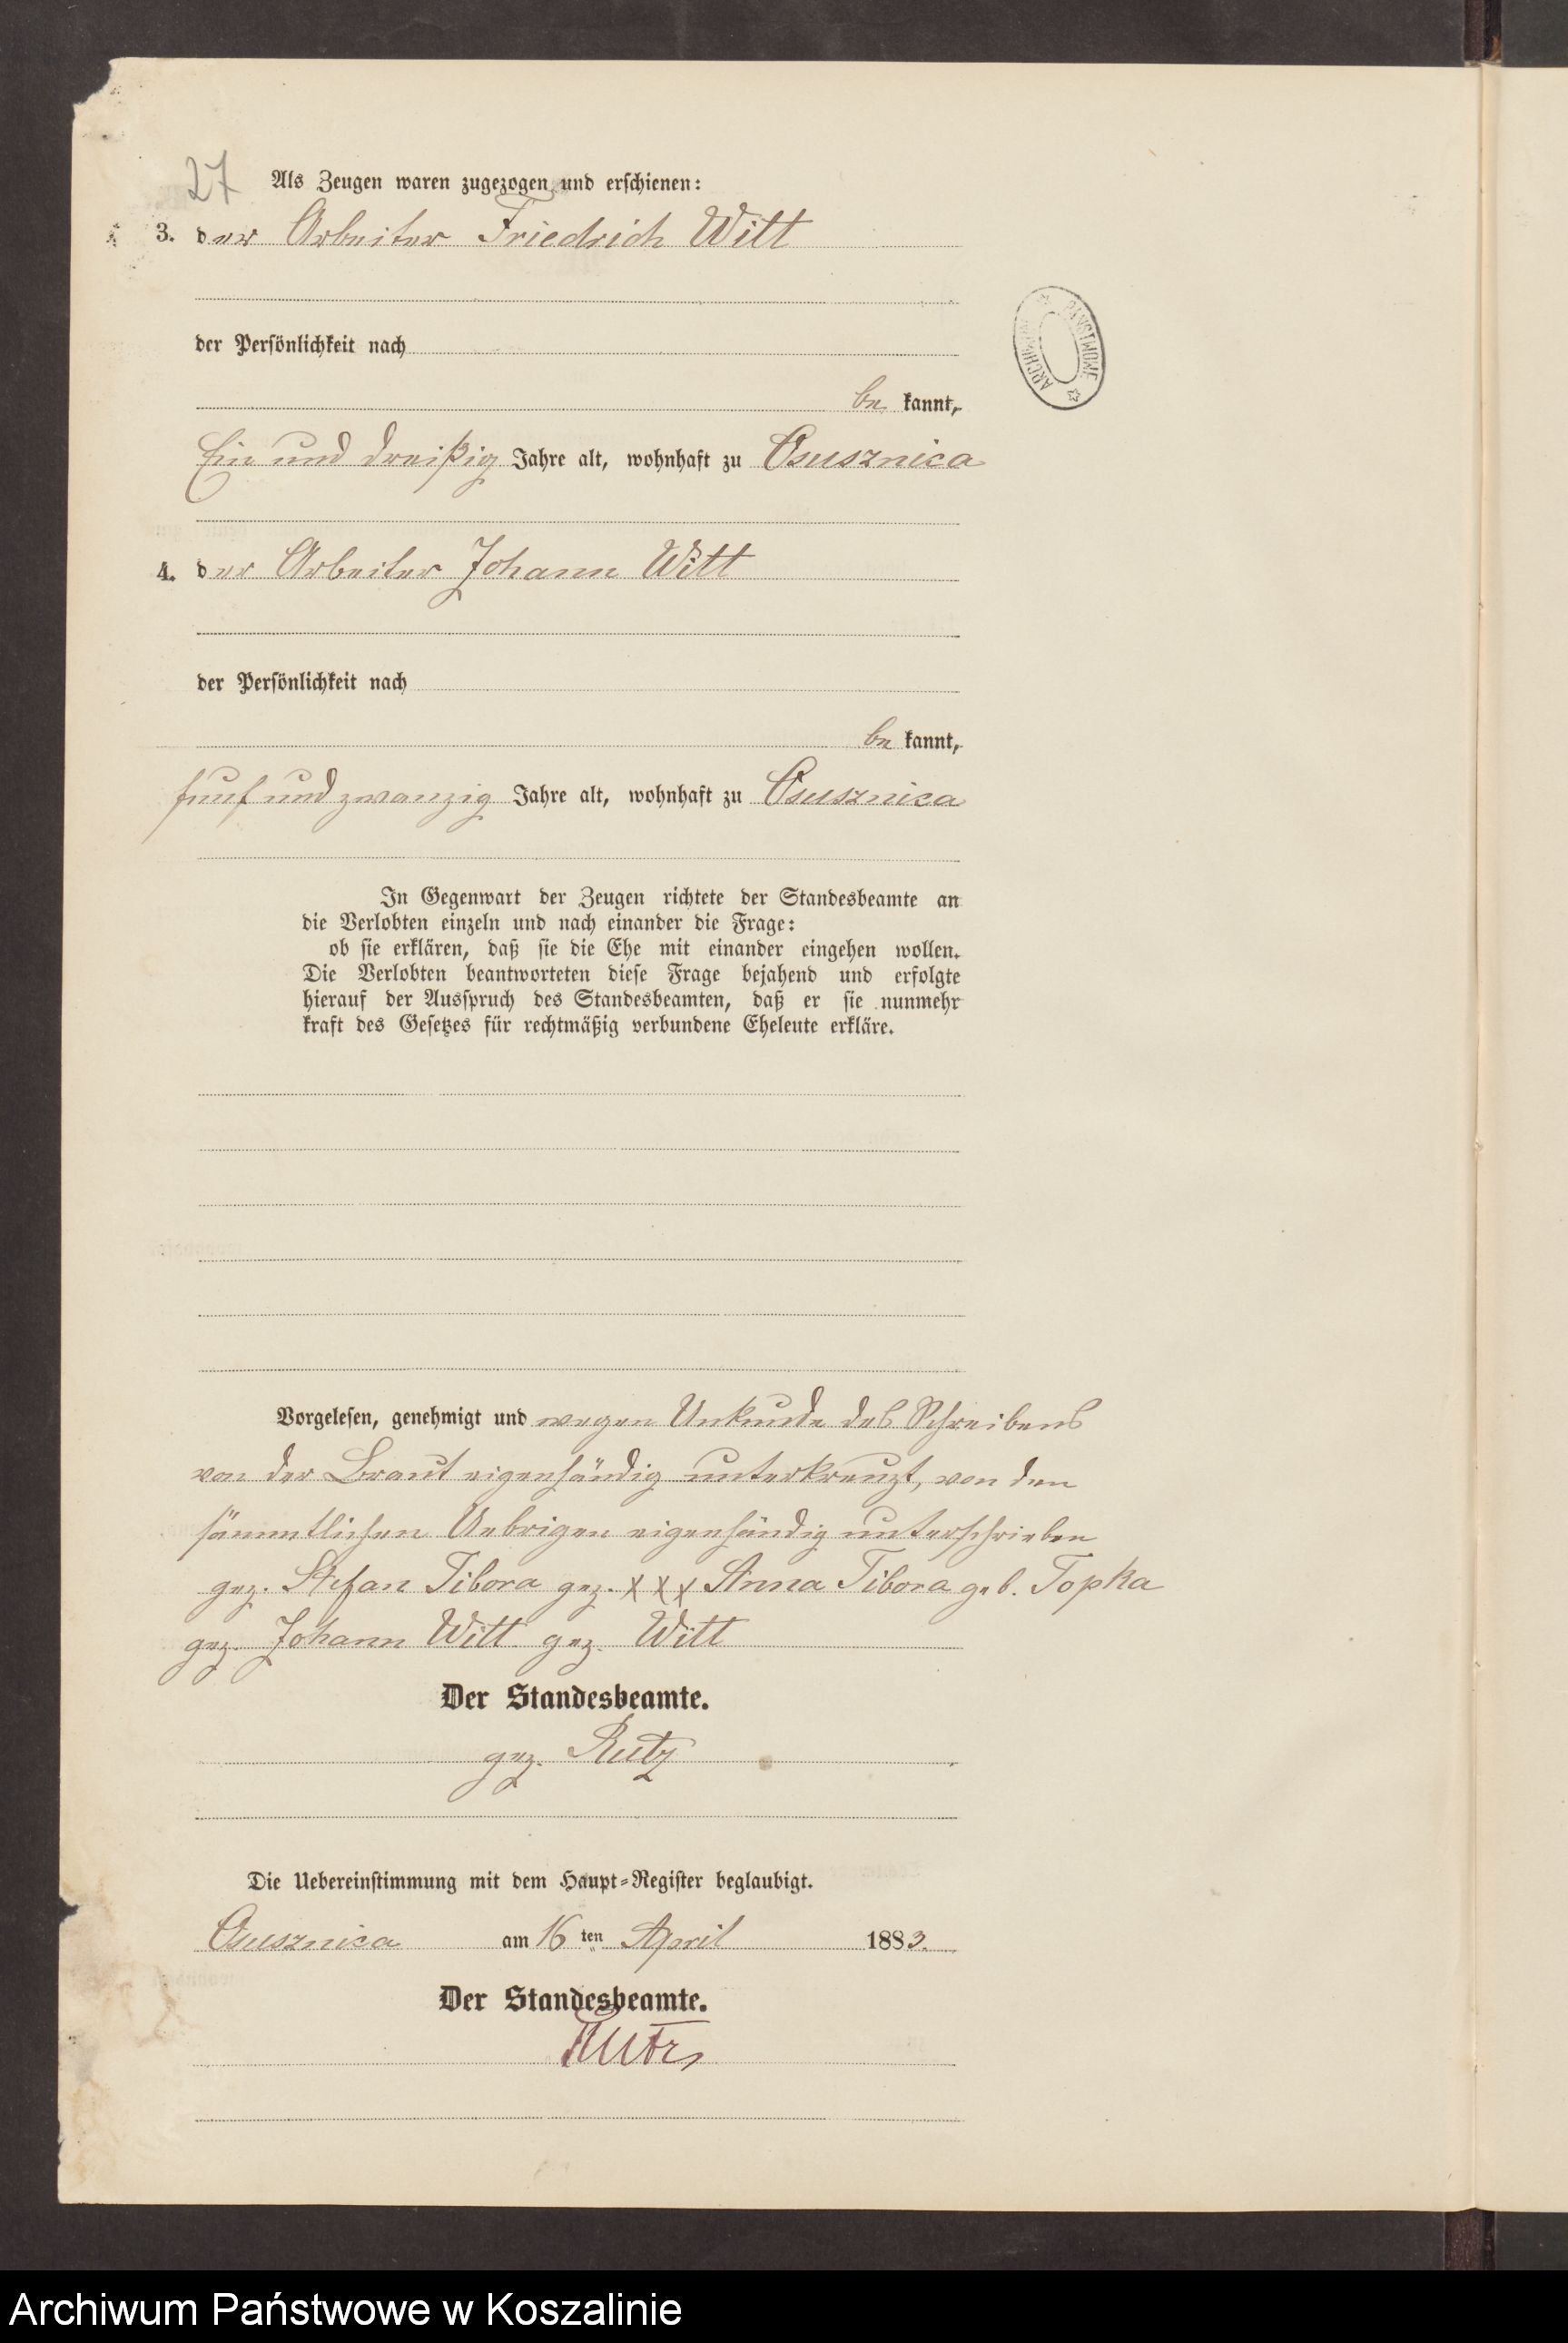 27
Als Zeugen waren zugezogen und erschienen:
3. der Arbeiter Friedrich Witt
der Persönlichkeit nach
be kannt,
Ein und dreißig Jahre alt, wohnhaft zu Osusznica
4. der Arbeiter Johann Witt
der Persönlichkeit nach
be kannt,
fünf und zwanzig Jahre alt, wohnhaft zu Osusznica
In Gegenwart der Zeugen richtete der Standesbeamte an
die Verlobten einzeln und nach einander die Frage:
ob sie erklären, daß sie die Ehe mit einander eingehen wollen.
Die Verlobten beantworteten diese Frage bejahend und erfolgte
hierauf der Ausspruch des Standesbeamten, daß er sie nunmehr
kraft des Gesetzes für rechtmäßig verbundene Eheleute erkläre.
Vorgelesen, genehmigt und wegen Unkunde des Schreibens
von der Braut eigenhändig unterkreuzt, von den
sämmtlichen Uebrigen eigenhändig unterschrieben
gez. Stefan Tibora gez. x x x Anna Tibora geb. Topka
gez. Johann Witt gez. Witt
Der Standesbeamte.
gez. Rutz
Die Uebereinstimmung mit dem Haupt-Register beglaubigt.
Osusznica am 16 ten April 1883.
Der Standesbeamte.
Rutz
ARCHIWUM PAŃSTWOWE
Archiwum Państwowe w Koszalinie